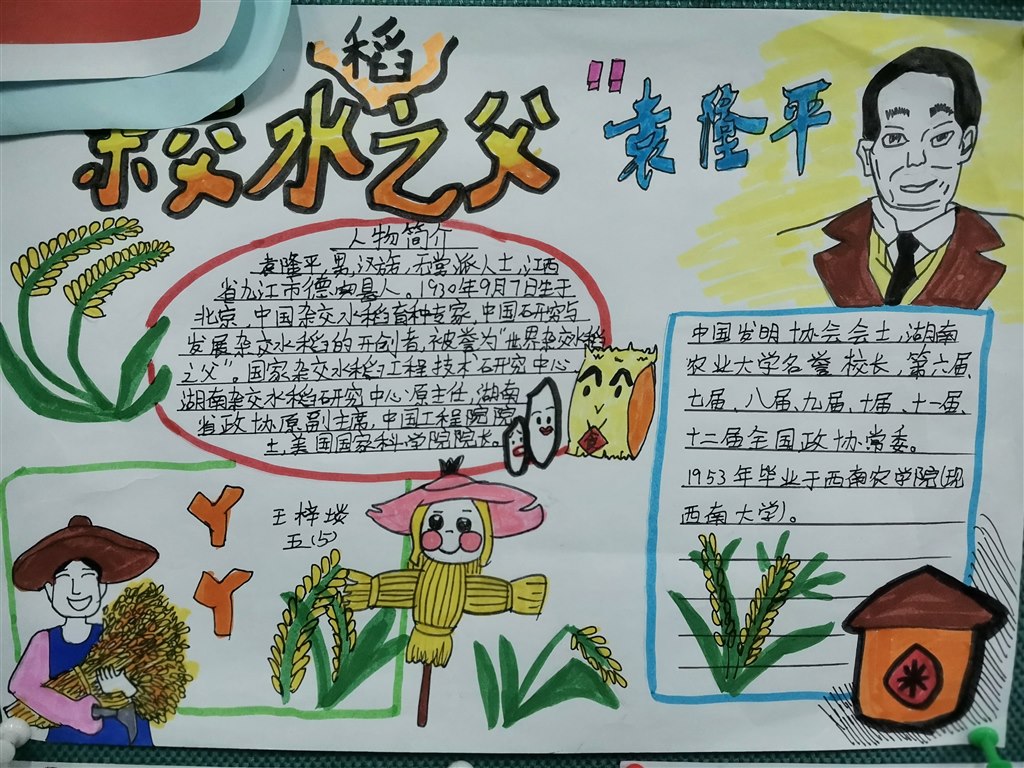 稻
杂交水之父
"袁隆平
人物简介
袁隆平,男,汉族,无党派人士,江西
省九江市德安县人。1930年9月7日生于
北京,中国杂交水稻育种专家,中国研究与
发展杂交水稻的开创者,被誉为"世界杂交水稻
之父"。国家杂交水稻工程技术研究中心
湖南杂交水稻研究中心原主任,湖南
省政协原副主席,中国工程院院
士,美国国家科学院院长。
中国发明协会会士,湖南
农业大学名誉校长,第六届、
七届、八届、九届、十届、十一届、
十二届全国政协常委。
1953年毕业于西南农学院(现
西南大学)。
王梓
五(5)
丫
丫